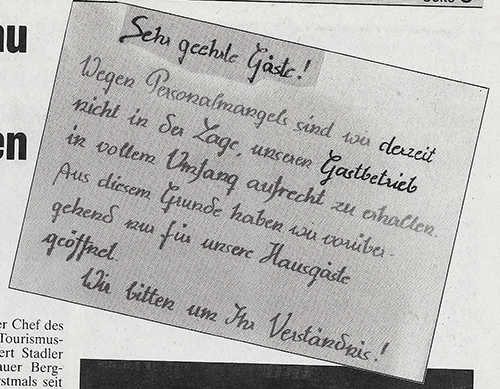 Seite
au
en
Sehr geehrte Gäste!
Wegen Personalmangels sind wir derzeit
nicht in der Lage, unseren Gastbetrieb
in vollem Umfang aufrecht zu erhalten.
Aus diesem Grunde haben wir vorüber-
gehend nur für unsere Hausgäste
geöffnet.
Wir bitten um Ihr Verständnis!
er Chef des
Tourismus-
ert Stadler
auer Berg-
rstmals seit